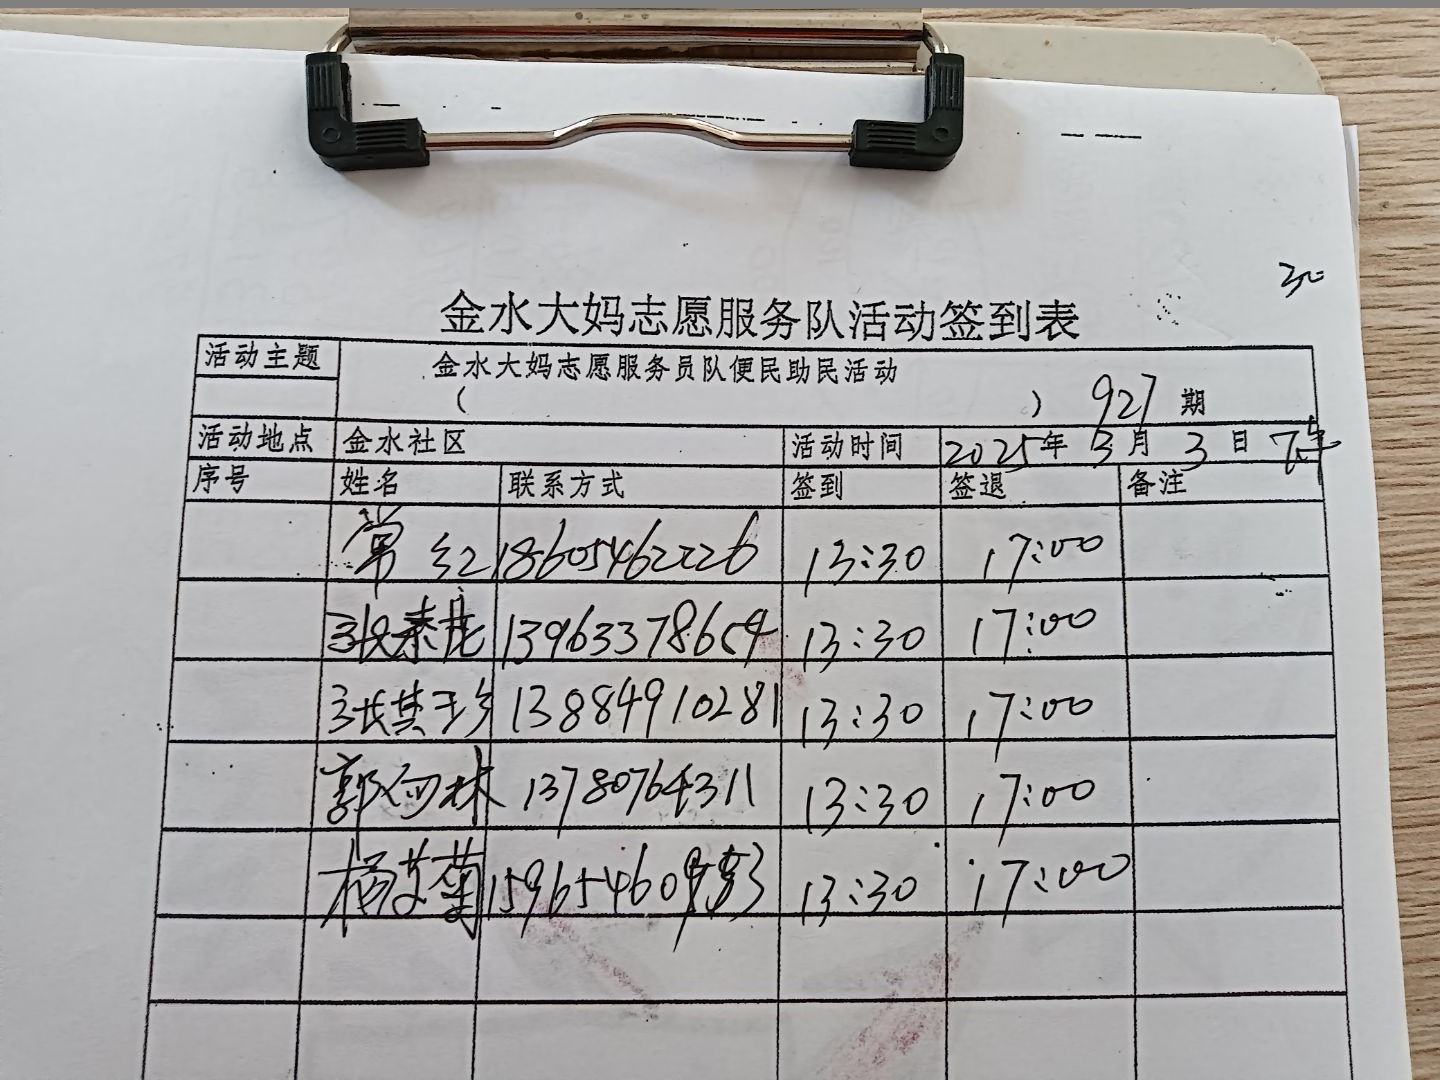 30
金水大妈志愿服务队活动签到表
活动主题 金水大妈志愿服务员队便民助民活动
( ) 927 期
活动地点 金水社区 活动时间 2025年 3月 3日
序号 姓名 联系方式 签到 签退 备注
常红 18605462226 13:30 17:00
张秦龙 13963378654 13:30 17:00
张其玉乡 13884910281 13:30 17:00
郭向林 13780764311 13:30 17:00
杨艾菊 159654609 3 13:30 17:00